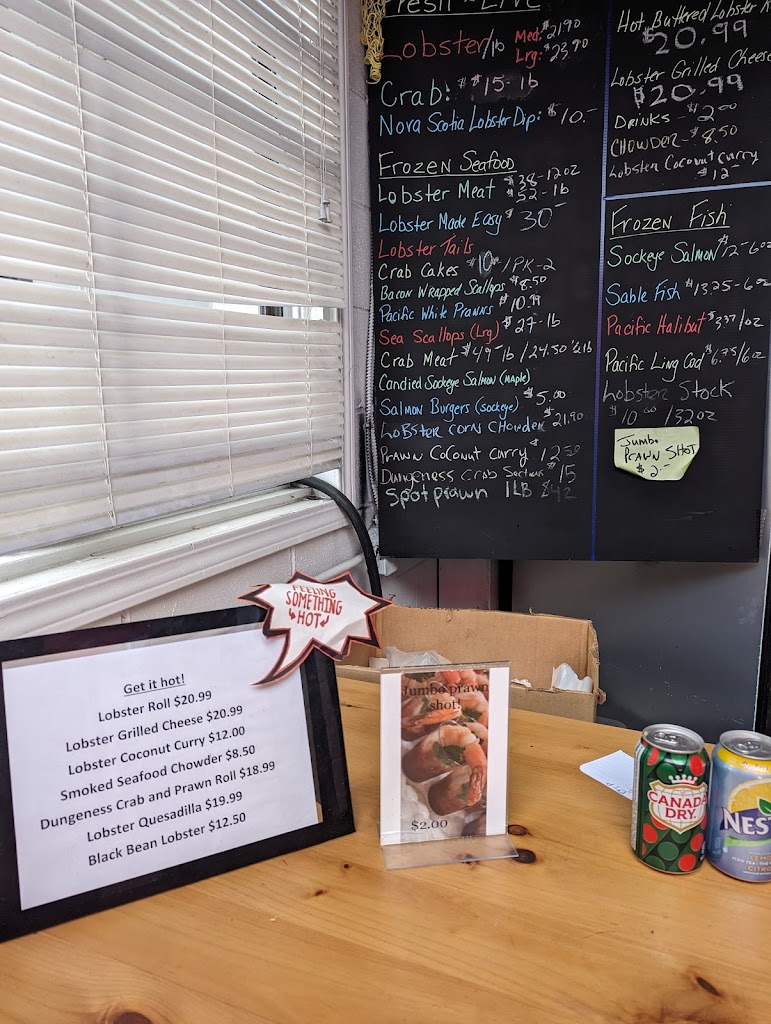 Fresh - Live
Lobster/lb Med: $21.90
Lrg: $23.90
Crab: $15-lb
Nova Scotia Lobster Dip: $10.-
Frozen Seafood
Lobster Meat $38-12oz
$52-lb
Lobster Made Easy $30-
Lobster Tails
Crab Cakes $10.00/PK-2
Bacon Wrapped Scallops $8.50
Pacific White Prawns $10.99
Sea Scallops (Lrg) $27-lb
Crab Meat $49-lb/24.50 ½lb
Candied Sockeye Salmon (Maple)
Salmon Burgers (Sockeye) $5.00
Lobster Corn Chowder $21.90
Prawn Coconut Curry $12.50
Dungeness Crab Sections $15
Spot prawn 1LB $42
Hot Buttered Lobster
$20.99
Lobster Grilled Cheese
$20.99
Drinks - $2.00
Chowder - $8.50
Lobster Coconut Curry
$12-
Frozen Fish
Sockeye Salmon $12-6oz
Sable Fish $13.25-6oz
Pacific Halibut $3.37/oz
Pacific Ling Cod $6.75/6oz
Lobster Stock
$10.00/32oz
Jumbo
Prawn Shot
$2.-
FEELING
SOMETHING
HOT
Get it hot!
Lobster Roll $20.99
Lobster Grilled Cheese $20.99
Lobster Coconut Curry $12.00
Smoked Seafood Chowder $8.50
Dungeness Crab and Prawn Roll $18.99
Lobster Quesadilla $19.99
Black Bean Lobster $12.50
Jumbo prawn
shot!
$2.00
CANADA
DRY
NES